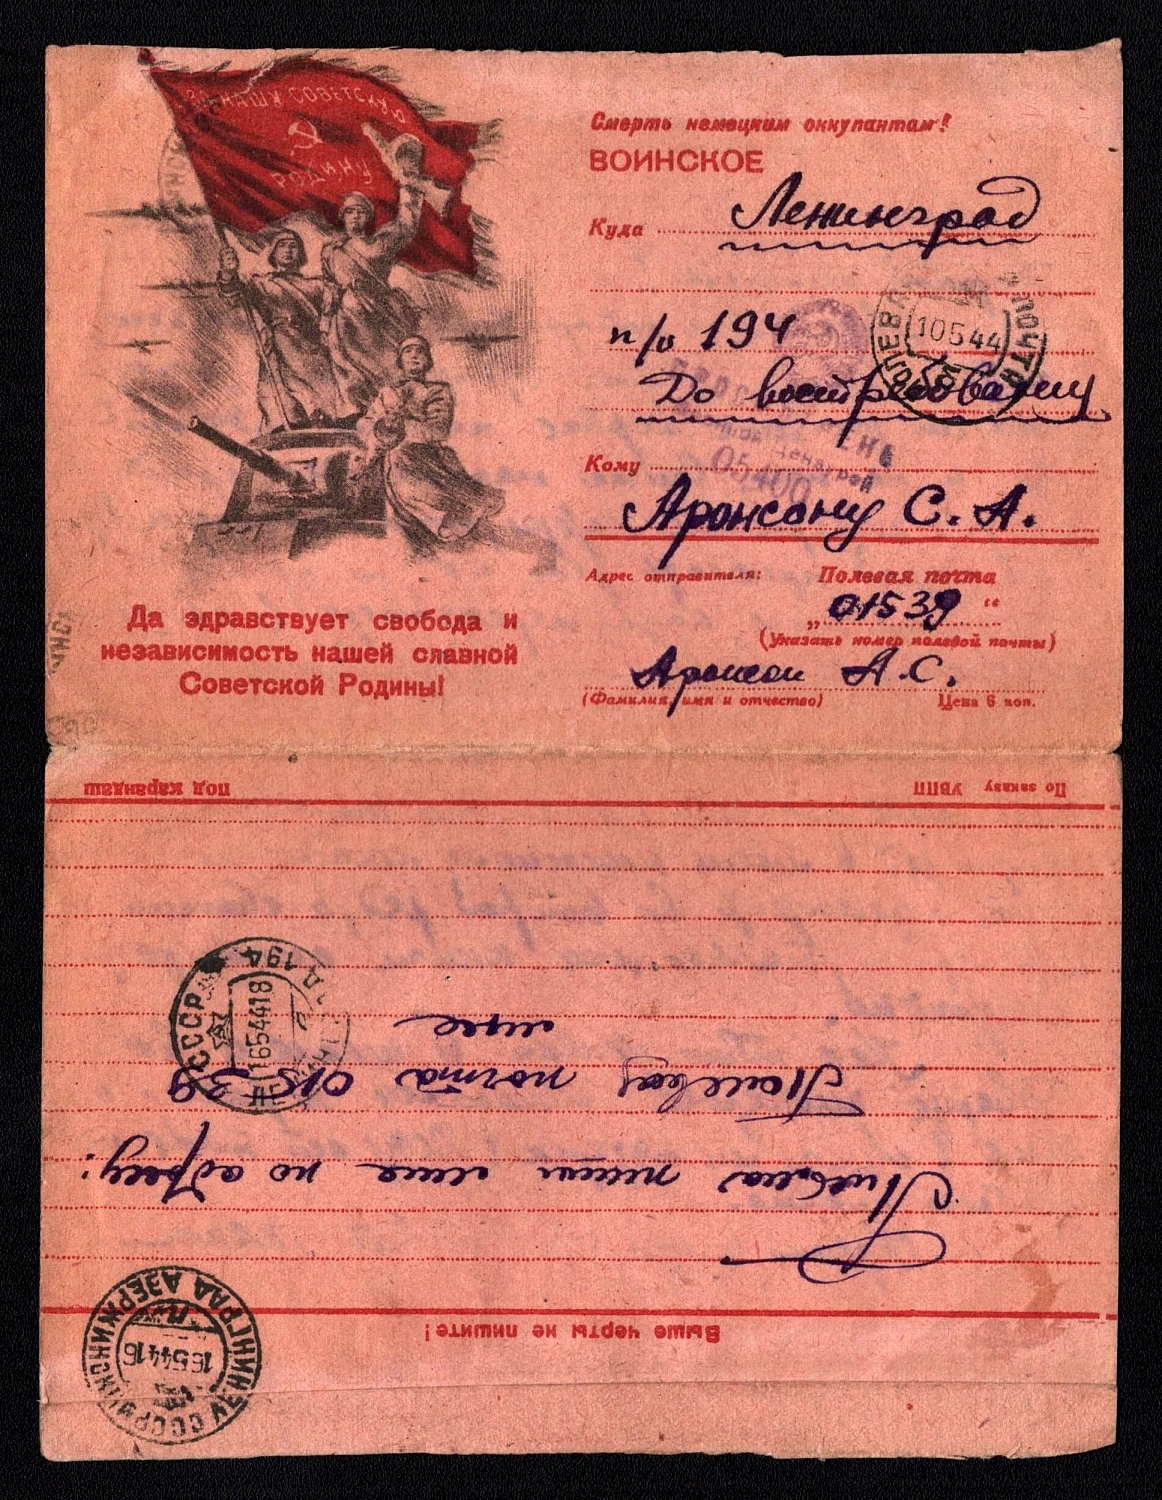 ЗА НАШУ СОВЕТСКУЮ
РОДИНУ
Да здравствует свобода и
независимость нашей славной
Советской Родины!
Смерть немецким оккупантам!
ВОИНСКОЕ
Куда Ленинград
п/о 194
До востребования
ПОЛЕВАЯ ПОЧТА
10 5 44
Кому
Аронсону С. А.
Адрес отправителя: Полевая почта
„01539“
(Указать номер полевой почты)
Аронсон А.С.
(Фамилия, имя и отчество) Цена 6 коп.
По заказу УВПП под карандаш
Выше черты не пишите!
Письма пиши мне по адресу:
Полевая почта 01539
мне
СССР 194
16 5 44 18
ЛЕНИНГРАД ДЗЕРЖИНСКИЙ СССР
16 5 44 16